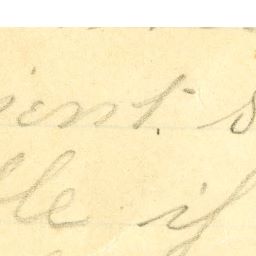 ient s
lle if